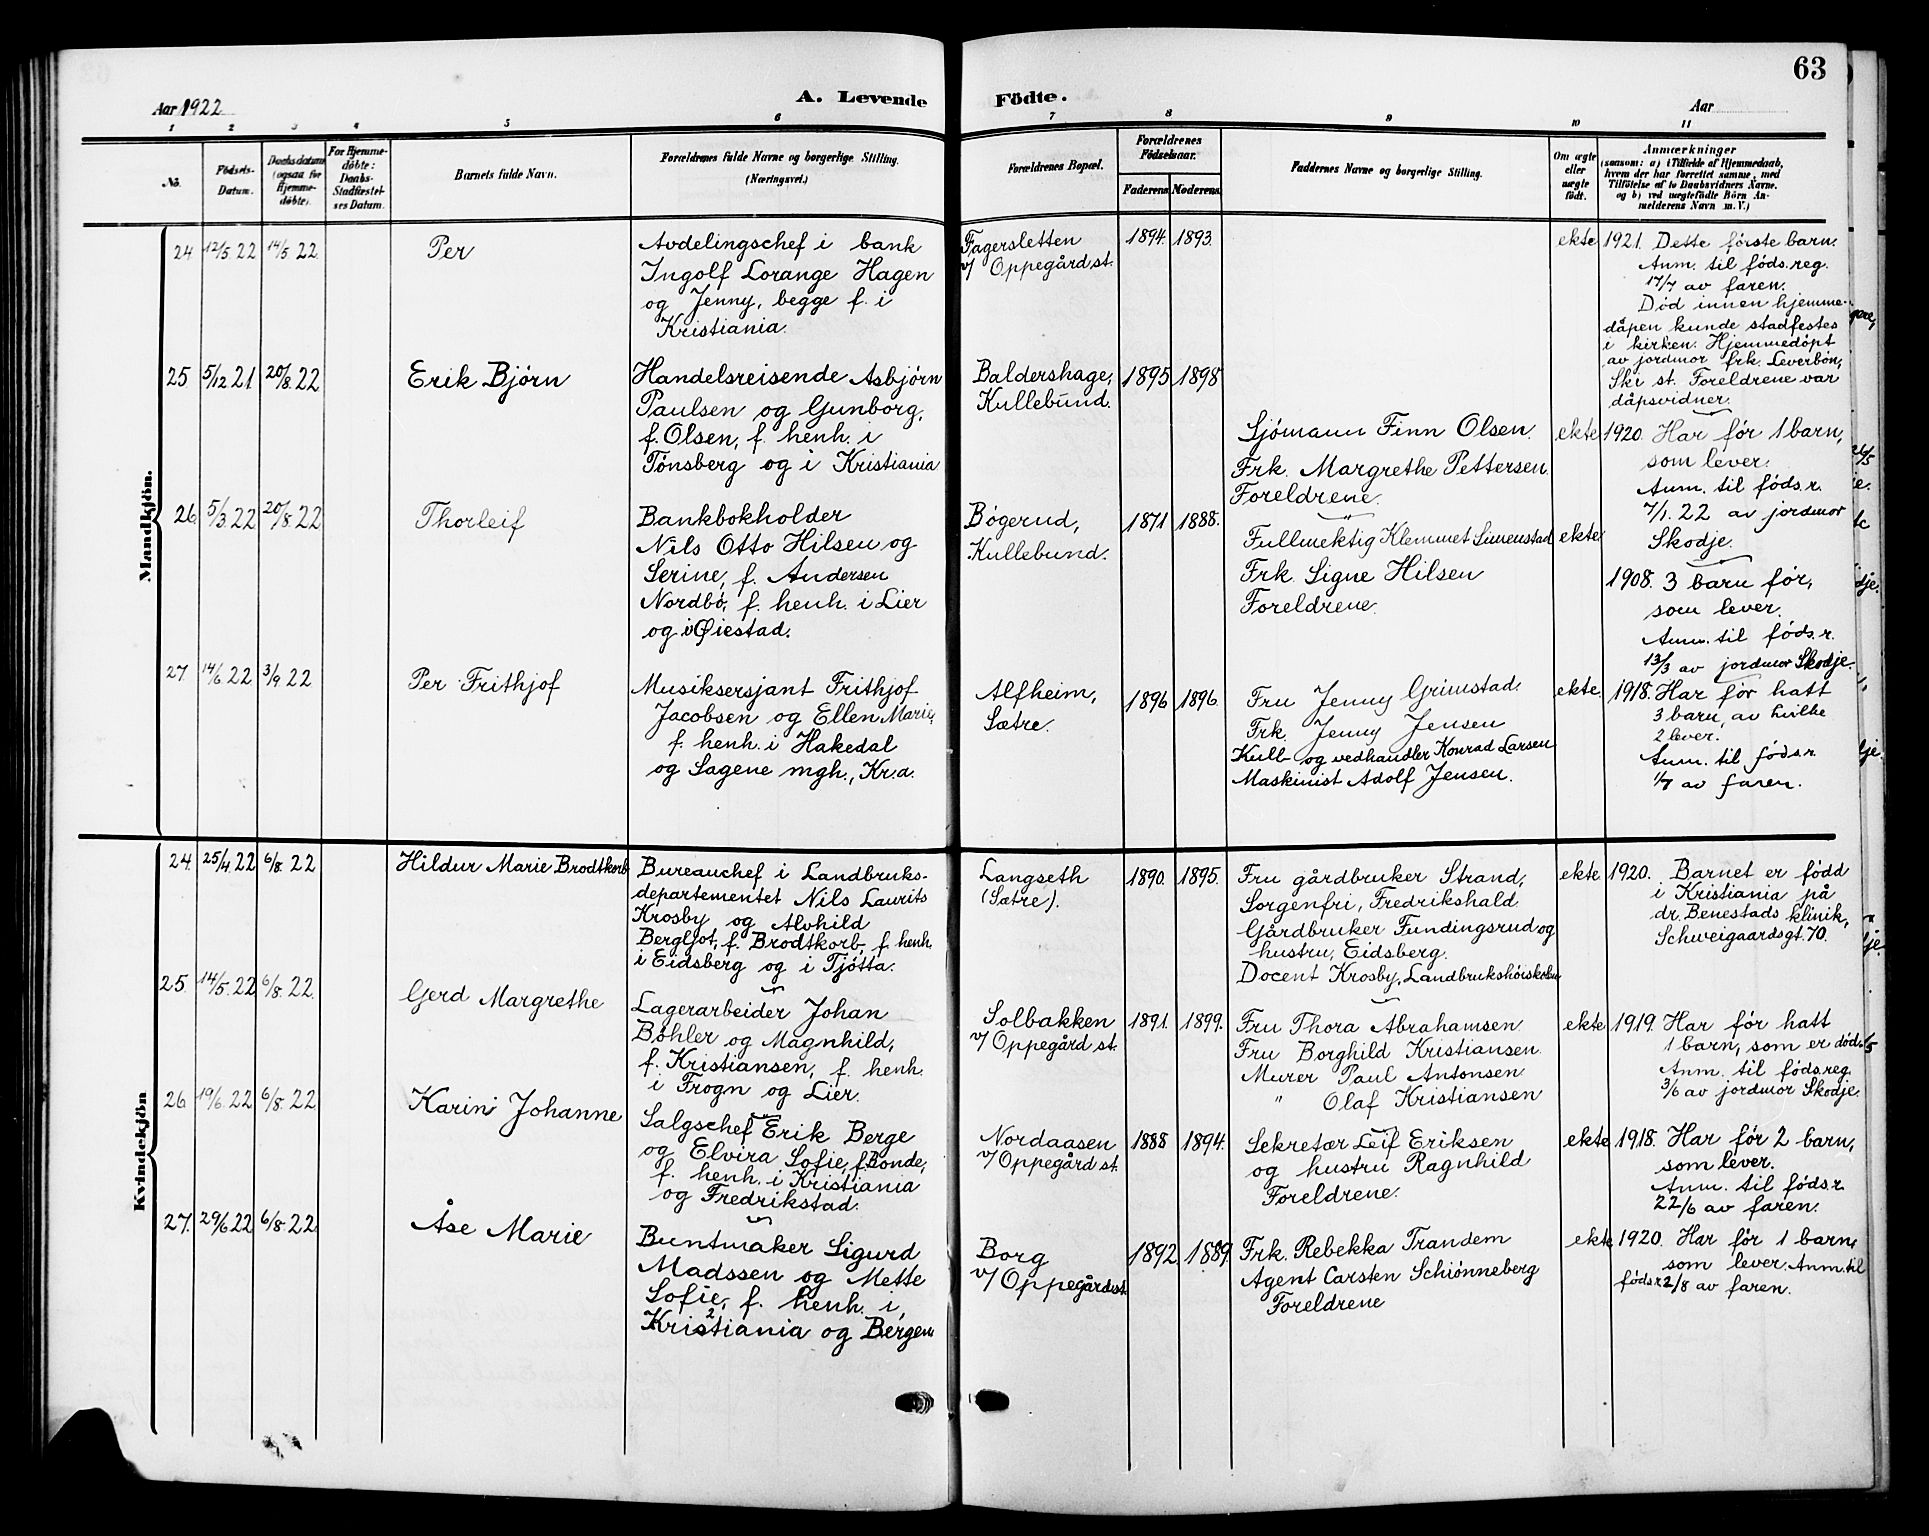 63
Aar 1922
A. Levende
Födte.
Aar
1 2 3 4 5 6 7 8 9 10 11
No.
Födsels-
Datum.
Daabsdatum
(ogsaa for
Hjemme-
döbte).
For Hjemme-
döbte:
Daabs-
Stadfæstel-
ses Datum.
Barnets fulde Navn.
Forældrenes fulde Navne og borgerlige Stilling.
(Næringsvei.)
Forældrenes Bopæl.
Forældrenes
Födselsaar.
Faderens. Moderens.
Faddernes Navne og borgerlige Stilling.
Om ægte
eller
uægte
födt.
Anmærkninger
(saasom: a) i Tilfælde af Hjemmedaab,
hvem der har forrettet samme, med
Tilföielse af to Daabsvidners Navne.
og b) ved uægtefödte Börn An-
melderens Navn m. V.)
Mandkjön.
24 12/5 22 14/5 22
Per
Avdelingschef i bank
Ingolf Lorange Hagen
og Jenny, begge f. i
Kristiania.
Fagersletten
v/ Oppegård st.
1894. 1893.
ekte
1921. Dette første barn.
Anm. til føds.reg.
17/7 av faren.
Død innen hjemme-
dåpen kunde stadfestes
i kirken. Hjemmedøpt
av jordmor frk. Leverbøn,
Ski st. Foreldrene var
dåpsvidner.
25 5/12 21 20/8 22
Erik Bjørn
Handelsreisende Asbjørn
Paulsen og Gunborg,
f. Olsen, f. henh. i
Tønsberg og i Kristiania
Baldershage,
Kullebund.
1895 1898
Sjømann Finn Olsen.
Frk. Margrethe Pettersen
Foreldrene.
ekte
1920. Har før 1 barn,
som lever.
Anm. til føds.r.
7/1. 22 av jordmor
Skodje.
26. 5/3 22 20/8 22
Thorleif
Bankbokholder
Nils Otto Hilsen og
Serine, f. Andersen
Nordbø, f. henh. i Lier
og i Øiestad.
Bøgerud,
Kullebund.
1871 1888.
Fullmektig Klemmet Simenstad
Frk. Signe Hilsen
Foreldrene.
ekte
1908. 3 barn før,
som lever.
Anm. til føds.r.
13/3 av jordmor Skodje.
27. 14/6 22 3/9 22
Per Frithjof
Musiksersjant Frithjof
Jacobsen og Ellen Marie,
f. henh. i Hakedal
og Sagene mgh., Kr.a.
Alfheim,
Sætre.
1896 1896.
Fru Jenny Grimstad.
Frk. Jenny Jensen
Kull- og vedhandler Konrad Larsen
Maskinist Adolf Jensen.
ekte.
1918. Har før hatt
3 barn, av hvilke
2 lever.
Anm. til føds.r.
1/7 av faren.
Kvindekjön
24. 25/4 22 6/8. 22
Hildur Marie Brodtkorb
Bureauchef i Landbruks-
departementet Nils Laurits
Krosby og Alvhild
Bergljot, f. Brodtkorb, f. henh.
i Eidsberg og i Tjøtta.
Langseth
(Sætre).
1890. 1895.
Fru gårdbruker Strand,
Sorgenfri, Fredrikshald
Gårdbruker Fundingsrud og
hustru, Eidsberg.
Docent Krosby, Landbrukshøiskolen
ekte
1920. Barnet er født
i Kristiania på
dr. Benestads klinik,
Schweigaardsgt. 70.
25. 14/5. 22 6/8. 22.
Gerd Margrethe
Lagerarbeider Johan
Bøhler og Magnhild,
f. Kristiansen, f. henh.
i Frogn og Lier.
Solbakken
v/ Oppegård st.
1891. 1899.
Fru Thora Abrahamsen
Fru Borghild Kristiansen
Murer Paul Antonsen
" Olaf Kristiansen
ekte
1919. Har før hatt
1 barn, som er død.
Anm. til føds.reg.
3/6 av jordmor Skodje.
26. 19/6. 22 6/8 22
Karin Johanne
Salgschef Erik Berge
og Elvira Sofie, f. Bonde,
f. henh. i Kristiania
og Fredrikstad.
Nordaasen
v/ Oppegård st.
1888 1894.
Sekretær Leif Eriksen
og hustru Ragnhild
Foreldrene.
ekte
1918. Har før 2 barn,
som lever.
Anm. til føds.r.
22/6 av faren.
27. 29/6 22 6/8. 22.
Åse Marie
Buntmaker Sigurd
Madssen og Mette
Sofie, f. henh. i
Kristiania og Bergen
Borg
v/ Oppegård st.
1892. 1889.
Frk. Rebekka Trandem
Agent Carsten Schiønneberg
Foreldrene
ekte
1920. Har før 1 barn,
som lever. Anm. til
føds.r. 2/8 av faren.